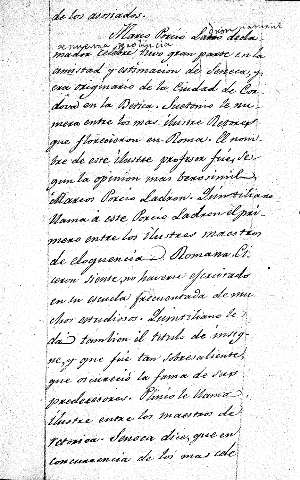 de los asonados.
Marco Porcio Latro decla-
mador célebre tuvo gran parte en la
amistad y estimacion de Seneca, y
era originario de la Ciudad de Cor-
dova en la Betica. Suetonio le nu-
mera entre los mas ilustre Retores
que florecieron en Roma. El nom-
bre de este ilustre profesor fue, se-
gun la opinion mas berosimil
Marcos Porcio Ladron. Quintiliano
llama a este Porcio Ladron el pri-
mero entre los ilustres maestros
de eloquencia Romana. Ci-
ceron siente no haverse egercitado
en su escuela frecuentada de mu-
chos estudiosos. Quintiliano le
dá tambien el titulo de insig-
ne, y que fué tan sobresaliente,
que oscureció la fama de sus
predecesores. Plinio le llama
ilustre entre los maestros de
retorica. Seneca dice, que en
concurrencia de los mas cele